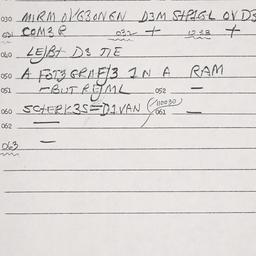 030 MIRM OVG3ONEN D3M SHPIGL OV D3
031 COM3R 032 + 12 33 +
060 LE/BT D3 TIE
050 A FOT3GRMF/3 IN A RAM
051 -BUT RE/ML 052 —
060 SCHERK3S=DIVAN (110030) 061 —
062 —
063 —